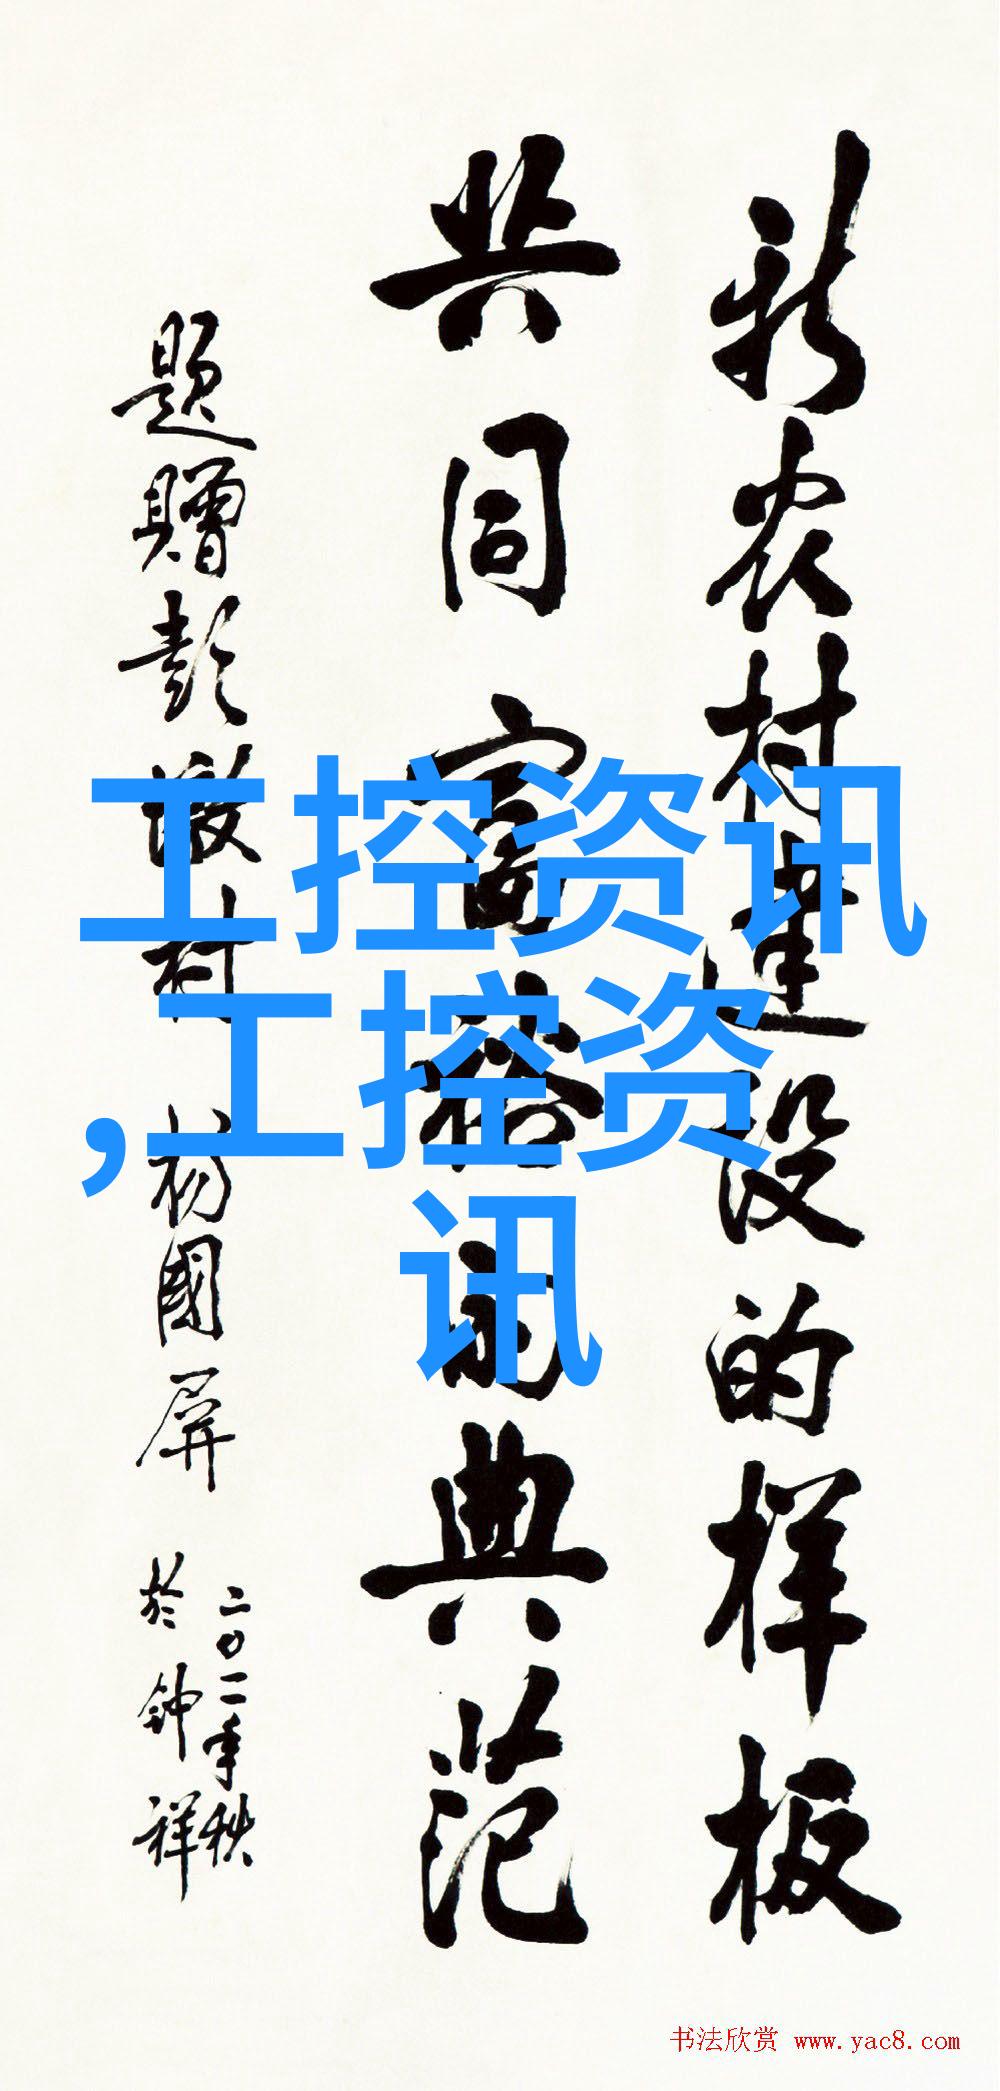 新农村建设的样板
共同富裕的典范
题赠彭墩村 杨国屏
二〇一一年秋
於钟祥
工控资讯
,工控资
讯
书法欣赏 www.yac8.com